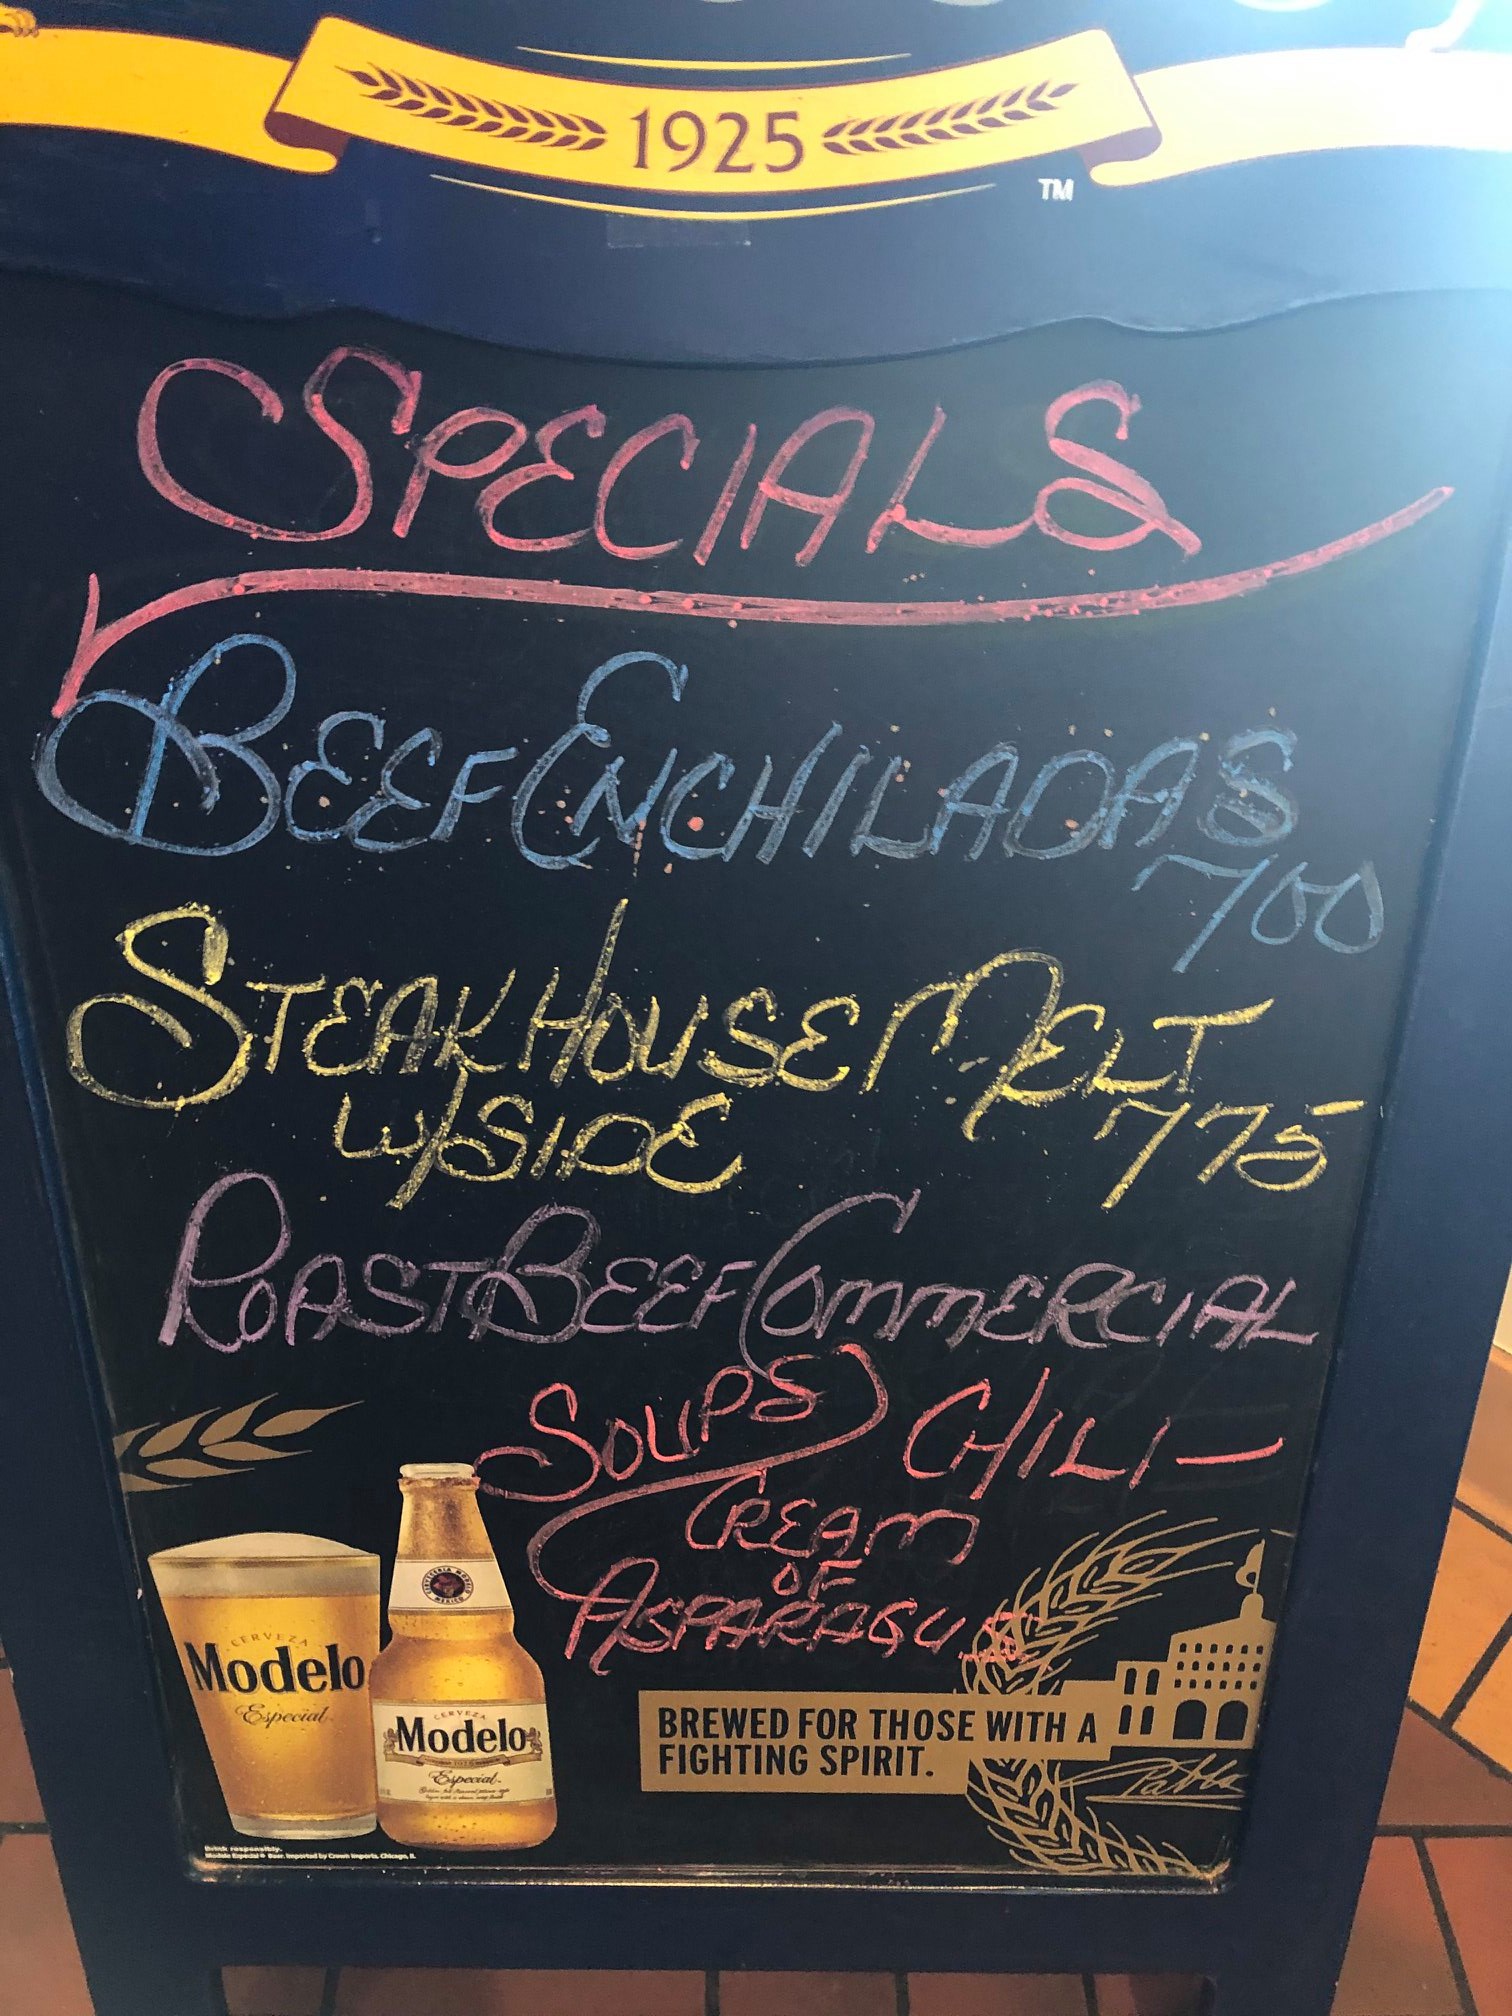 1925
TM
SPECIALS
BEEF ENCHILADAS
700
STEAKHOUSE MELT
W/SIDE
775
ROAST BEEF COMMERCIAL
SOUPS CHILI -
CREAM
OF
ASPARAGUS
CERVEZA
Modelo
Especial
CERVECERIA MODELO
MEXICO
CERVEZA
Modelo
Especial
BREWED FOR THOSE WITH A
FIGHTING SPIRIT.
Drink responsibly.
Modelo Especial® Beer. Imported by Crown Imports, Chicago, IL